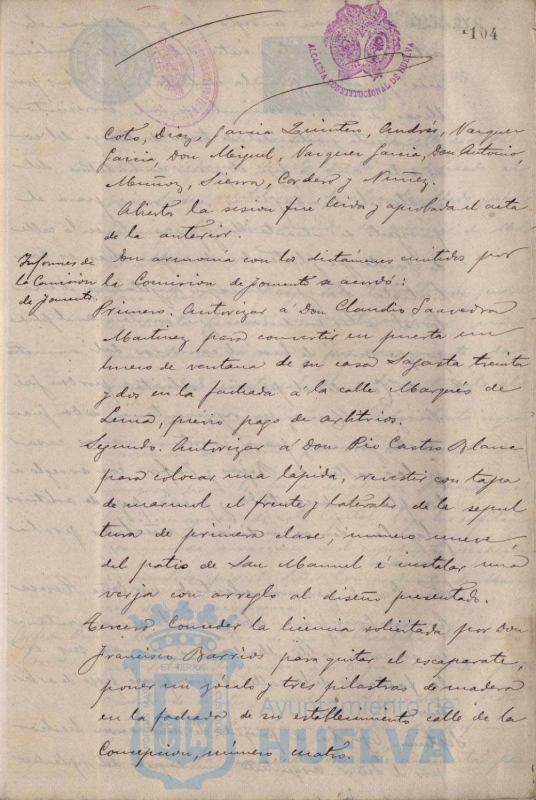 104
ALCALDIA CONSTITUCIONAL DE HUELVA
Coto, Diaz, Garcia Quintero, Andrés, Vazquez
Garcia, Don Miguel, Vazquez Garcia, Don Antonio,
Muñoz, Sierra, Cordero y Nuñez.
Abierta la sesion fué leida y aprobada el acta
de la anterior.
Informes de
la Comisión
de fomento.
En armonia con los dictámenes emitidos por
la Comision de fomento se acordó:
Primero. Autorizar á Don Claudio Saavedra
Martinez para convertir en puerta un
hueco de ventana de su casa Sagasta treinta
y dos en la fachada á la calle Marqués de
Lema, previo pago de arbitrios.
Segundo. Autorizar á Don Pio Castro Blanc
para colocar una lápida, revestir con tapa
de marmol el frente y laterales de la sepul
tura de primera clase, número nueve
del patio de San Manuel é instalar una
verja con arreglo al diseño presentado.
Tercero. Conceder la licencia solicitada por Don
Francisco Barrios para quitar el escaparate,
poner un zócalo y tres pilastras de madera
en la fachada de su establecimiento calle de la
Concepcion, número cuatro.
Ayuntamiento de
HUELVA